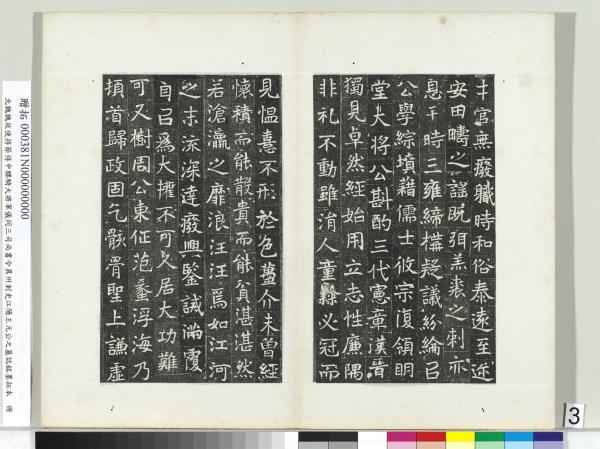 士官無廢職時和俗泰遠至迩
安田疇之謡既弭羔裘之刺亦
息于時三雍締搆疑議紛綸召
公學綜墳籍儒士攸宗復領明
堂大將公斟酌三代憲章漢晉
獨見卓然經始用立志性廉隅
非礼不動雖湏人童隸必冠而
見愠憙不形於色蠆介未曾經
懷積而能散貴而能貧湛湛然
若滄瀛之靡浪汪汪焉如江河
之末流深達廢興鑒誡滿覆
自召爲大權不可久居大功難
可又樹周公東征范蠡浮海乃
頓首歸政固乞骸骨聖上謙虛
贈拓 000381N000000000
元魏魏故使持節侍中驃騎大將軍儀同三司尚書令冀州刺史江陽王元公之墓誌銘墨拓本 冊
3